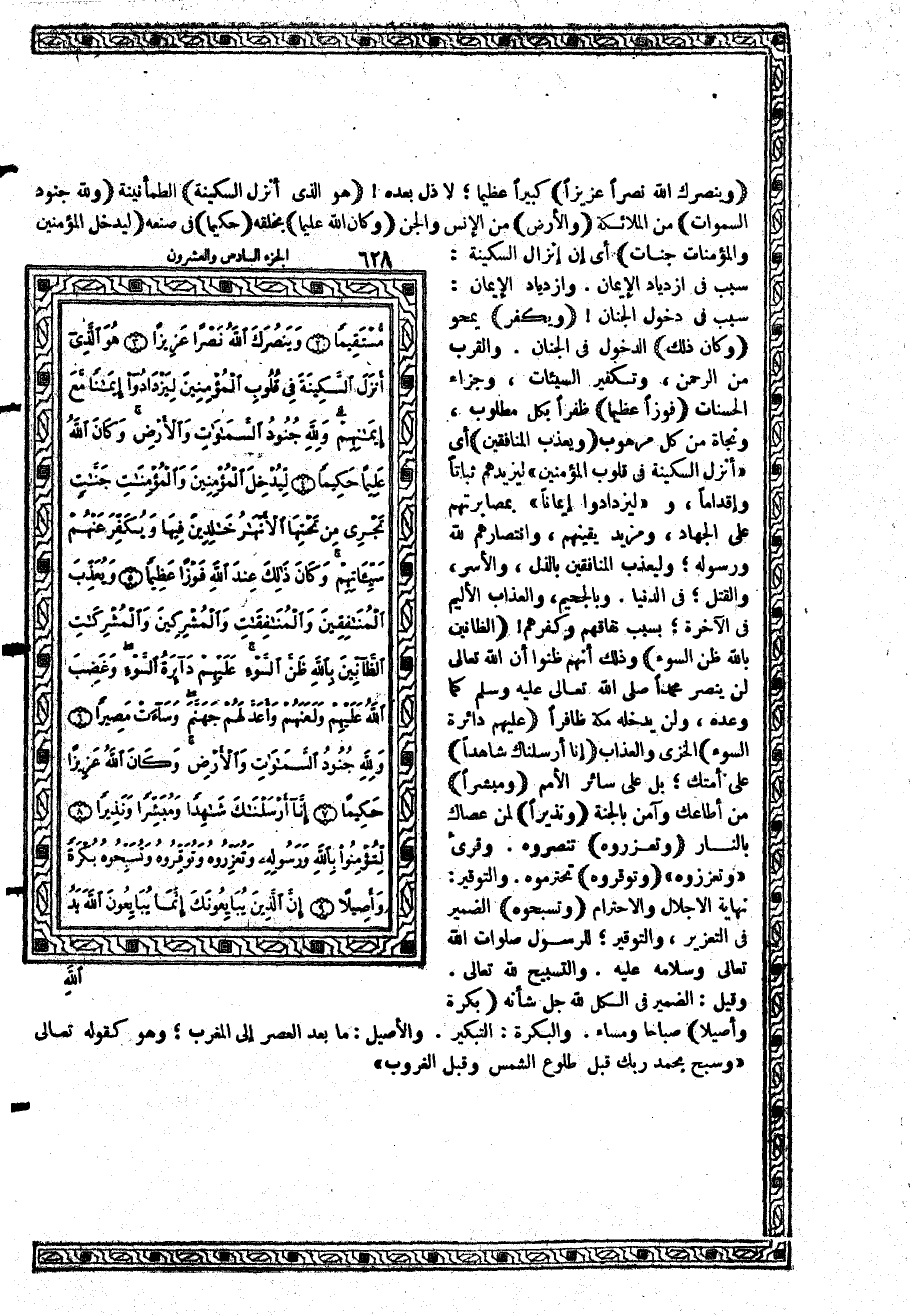 (وينصرك الله نصراً عزيزاً) كبيراً عظيما ؛ لا ذل بعده ! (هو الذى أنزل السكينة) الطمأنينة (ولله جنود
السموات) من الملائكة (والأرض) من الإنس والجن (وكان الله عليما) بخلقه (حكيما) فى صنعه (ليدخل المؤمنين
والمؤمنات جنات) أى إن إنزال السكينة :
سبب فى ازدياد الإيمان . وازدياد الإيمان :
سبب فى دخول الجنان ! (ويكفر) يمحو
(وكان ذلك) الدخول فى الجنان . والقرب
من الرحمن ، وتكفير السيئات ، وجزاء
الحسنات (فوزاً عظيما) ظفراً بكل مطلوب ،
ونجاة من كل مرهوب (ويعذب المنافقين) أى
«أنزل السكينة فى قلوب المؤمنين» ليزيدهم ثباتاً
وإقداماً ، و «ليزدادوا إيماناً» بمصابرتهم
على الجهاد ، ومزيد يقينهم ، وانتصارهم لله
ورسوله ؛ وليعذب المنافقين بالذل ، والأسر،
والقتل ؛ فى الدنيا . وبالجحيم، والعذاب الأليم
فى الآخرة ؛ بسبب نفاقهم وكفرهم! (الظانين
بالله ظن السوء) وذلك أنهم ظنوا أن الله تعالى
لن ينصر محمداً صلى الله تعالى عليه وسلم كما
وعده ، ولن يدخله مكة ظافراً (عليهم دائرة
السوء) الخزى والعذاب (إنا أرسلناك شاهداً)
على أمتك ؛ بل على سائر الأمم (ومبشراً)
من أطاعك وآمن بالجنة (ونذيراً) لمن عصاك
بالنـــار (وتعـزروه) تنصروه . وقرئ
«وتعززوه» (وتوقروه) تحترموه . والتوقير:
نهاية الاجلال والاحترام (وتسبحوه) الضمير
فى التعزير ، والتوقير ؛ للرســول صلوات الله
تعالى وسلامه عليه . والتسبيح لله تعالى .
وقيل : الضمير فى الكل لله جل شأنه (بكرة
وأصيلا) صباحا ومساء . والبكرة : التبكير . والأصيل : ما بعد العصر إلى المغرب ؛ وهو كـقوله تعـالى
«وسبح بحمد ربك قبل طلوع الشمس وقبل الغروب»
٦٢٨ الجزء السادس والعشرون
مُّسْتَقِيمًا ۝٢ وَيَنصُرَكَ ٱللَّهُ نَصْرًا عَزِيزًا ۝٣ هُوَ ٱلَّذِىٓ
أَنزَلَ ٱلسَّكِينَةَ فِى قُلُوبِ ٱلْمُؤْمِنِينَ لِيَزْدَادُوٓا۟ إِيمَـٰنًا مَّعَ
إِيمَـٰنِهِمْ ۗ وَلِلَّهِ جُنُودُ ٱلسَّمَـٰوَٰتِ وَٱلْأَرْضِ ۚ وَكَانَ ٱللَّهُ
عَلِيمًا حَكِيمًا ۝٤ لِّيُدْخِلَ ٱلْمُؤْمِنِينَ وَٱلْمُؤْمِنَـٰتِ جَنَّـٰتٍ
تَجْرِى مِن تَحْتِهَا ٱلْأَنْهَـٰرُ خَـٰلِدِينَ فِيهَا وَيُكَفِّرَ عَنْهُمْ
سَيِّـَٔاتِهِمْ ۚ وَكَانَ ذَٰلِكَ عِندَ ٱللَّهِ فَوْزًا عَظِيمًا ۝٥ وَيُعَذِّبَ
ٱلْمُنَـٰفِقِينَ وَٱلْمُنَـٰفِقَـٰتِ وَٱلْمُشْرِكِينَ وَٱلْمُشْرِكَـٰتِ
ٱلظَّآنِّينَ بِٱللَّهِ ظَنَّ ٱلسَّوْءِ ۚ عَلَيْهِمْ دَآئِرَةُ ٱلسَّوْءِ ۖ وَغَضِبَ
ٱللَّهُ عَلَيْهِمْ وَلَعَنَهُمْ وَأَعَدَّ لَهُمْ جَهَنَّمَ ۖ وَسَآءَتْ مَصِيرًا ۝٦
وَلِلَّهِ جُنُودُ ٱلسَّمَـٰوَٰتِ وَٱلْأَرْضِ ۚ وَكَانَ ٱللَّهُ عَزِيزًا
حَكِيمًا ۝٧ إِنَّآ أَرْسَلْنَـٰكَ شَـٰهِدًا وَمُبَشِّرًا وَنَذِيرًا ۝٨
لِّتُؤْمِنُوا۟ بِٱللَّهِ وَرَسُولِهِۦ وَتُعَزِّرُوهُ وَتُوَقِّرُوهُ وَتُسَبِّحُوهُ بُكْرَةً
وَأَصِيلًا ۝٩ إِنَّ ٱلَّذِينَ يُبَايِعُونَكَ إِنَّمَا يُبَايِعُونَ ٱللَّهَ يَدُ
ٱللَّهِ